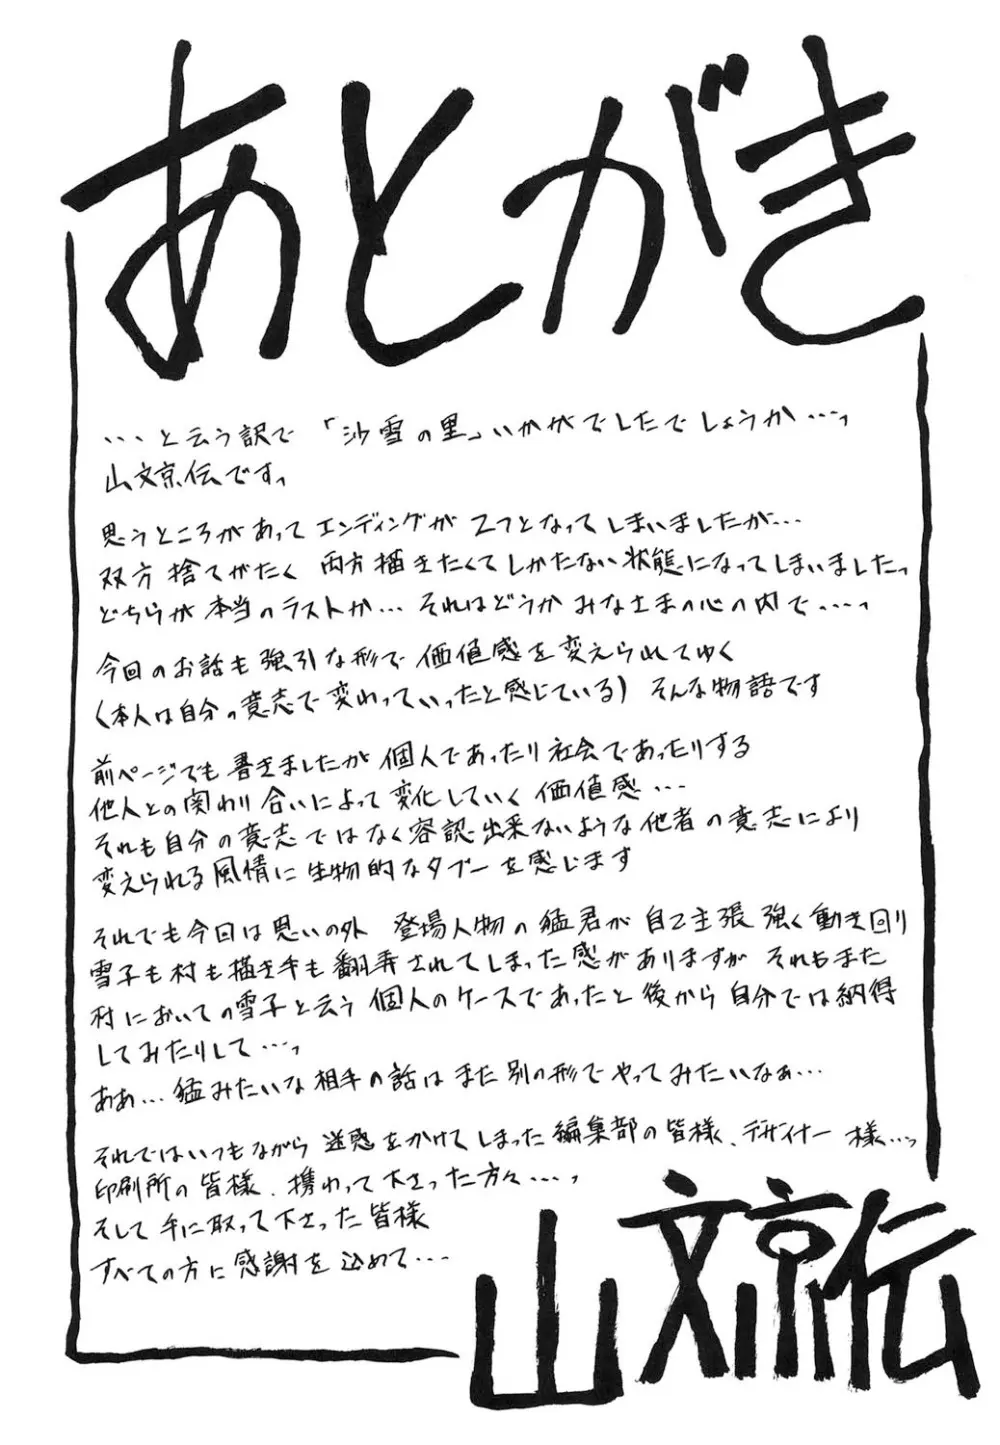 あとがき
…と云う訳で「沙雪の里」いかがでしたでしょうか…っ
山文京伝ですっ
思うところがあってエンディングが2つとなってしまいましたが…
双方捨てがたく 両方描きたくてしかたない状態になってしまいましたっ
どちらが本当のラストか…それはどうかみなさまの心の内で…っ
今回のお話も強引な形で価値感を変えられてゆく
(本人は自分の意志で変わっていったと感じている) そんな物語です
前ページでも書きましたが個人であったり社会であったりする
他人との関わり合いによって変化していく価値感…
それも自分の意志ではなく容認出来ないような他者の意志により
変えられる風情に生物的なタブーを感じます
それでも今回は思いの外 登場人物の猛君が自己主張強く動き回り
雪子も村も描き手も翻弄されてしまった感がありますが それもまた
村においての雪子と云う個人のケースであったと後から自分では納得
してみたりして…っ
ああ…猛みたいな相手の話はまた別の形でやってみたいなぁ…
それではいつもながら迷惑をかけてしまった編集部の皆様、デザイナー様…っ
印刷所の皆様、携わって下さった方々…っ
そして手に取って下さった皆様
すべての方に感謝を込めて…
山文京伝